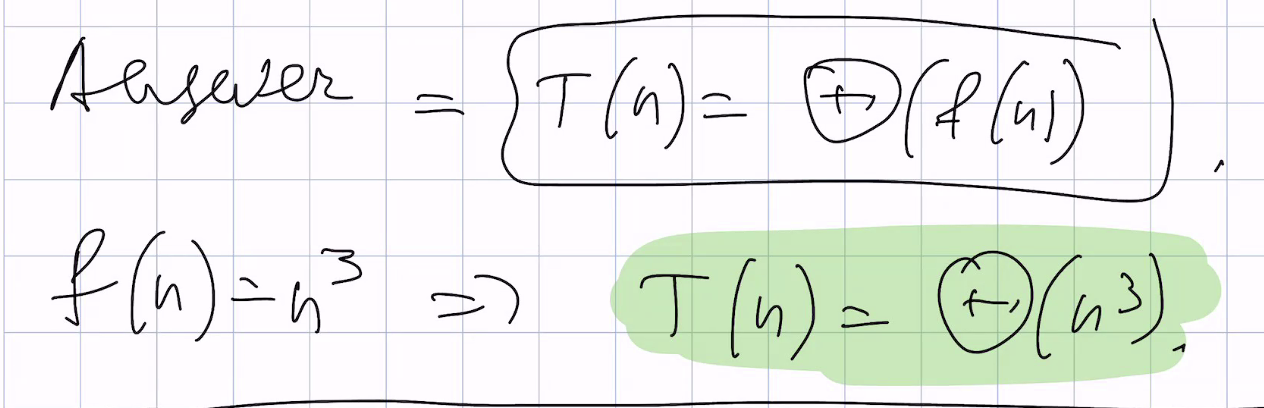 Answer = T(n) = Θ(f(n)) .
f(n) = n³ => T(n) = Θ(n³).